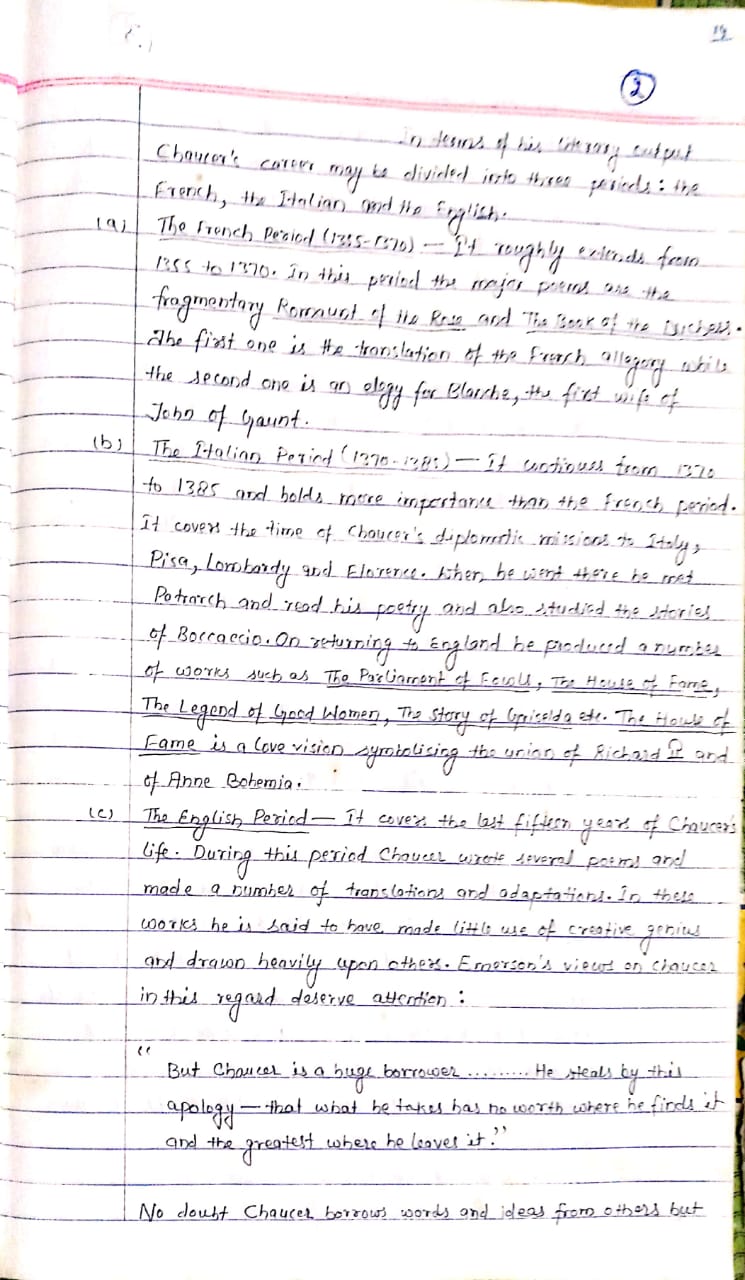 19
2
In terms of his literary output
Chaucer's career may be divided into three periods: the
French, the Italian and the English.
(a) The French Period (1355-1370) — It roughly extends from
1355 to 1370. In this period the major poems are the
fragmentary Romaunt of the Rose and The Book of the Duchess.
The first one is the translation of the French allegory while
the second one is an elegy for Blanche, the first wife of
John of Gaunt.
(b) The Italian Period (1370-1385) — It continues from 1370
to 1385 and holds more importance than the French period.
It covers the time of Chaucer's diplomatic missions to Italy,
Pisa, Lombardy and Florence. When he went there he met
Patrarch and read his poetry and also studied the stories
of Boccaccio. On returning to England he produced a number
of works such as The Parliament of Fowls, The House of Fame,
The Legend of Good Women, The Story of Griselda etc. The House of
Fame is a love vision symbolising the union of Richard II and
of Anne Bohemia.
(c) The English Period — It covers the last fifteen years of Chaucer's
life. During this period Chaucer wrote several poems and
made a number of translations and adaptations. In these
works he is said to have made little use of creative genius
and drawn heavily upon others. Emerson's views on Chaucer
in this regard deserve attention :
“
But Chaucer is a huge borrower ......... He steals by this
apology — that what he takes has no worth where he finds it
and the greatest where he leaves it.”
No doubt Chaucer borrows words and ideas from others but